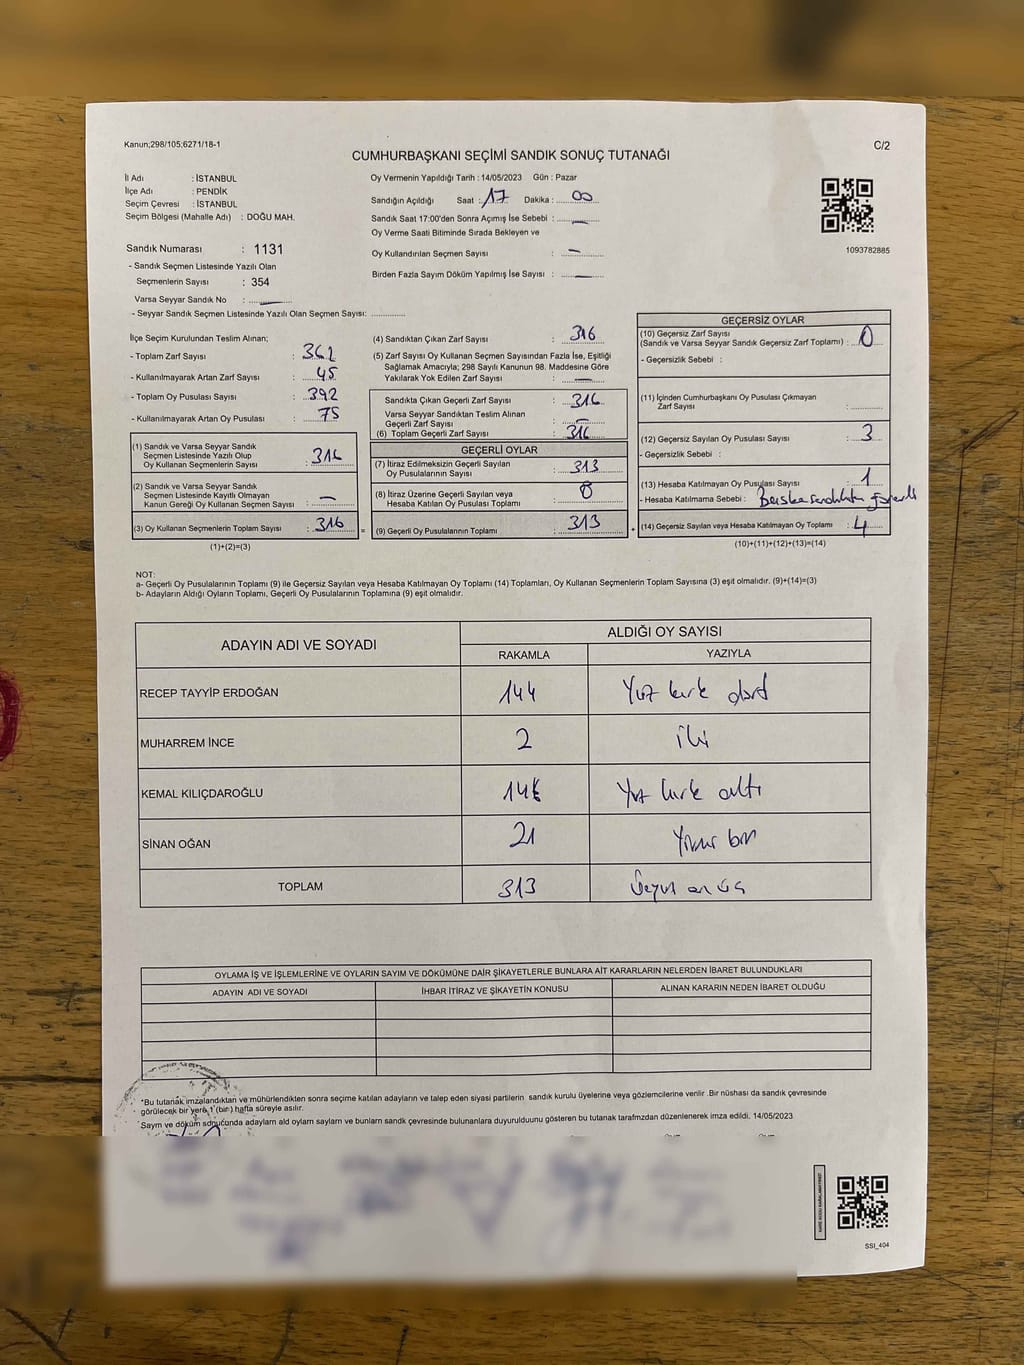 Kanun;298/105;6271/18-1
C/2
CUMHURBAŞKANI SEÇİMİ SANDIK SONUÇ TUTANAĞI
İl Adı : İSTANBUL
İlçe Adı : PENDİK
Seçim Çevresi : İSTANBUL
Seçim Bölgesi (Mahalle Adı) : DOĞU MAH.
Sandık Numarası : 1131
- Sandık Seçmen Listesinde Yazılı Olan
Seçmenlerin Sayısı : 354
Varsa Seyyar Sandık No : —
- Seyyar Sandık Seçmen Listesinde Yazılı Olan Seçmen Sayısı:
Oy Vermenin Yapıldığı Tarih : 14/05/2023 Gün : Pazar
Sandığın Açıldığı Saat : 17 Dakika : 00
Sandık Saat 17:00'den Sonra Açımış İse Sebebi : —
Oy Verme Saati Bitiminde Sırada Bekleyen ve
Oy Kullandırılan Seçmen Sayısı : —
Birden Fazla Sayım Döküm Yapılmış İse Sayısı : —
1093782885
İlçe Seçim Kurulundan Teslim Alınan;
- Toplam Zarf Sayısı : 361
- Kullanılmayarak Artan Zarf Sayısı : 45
- Toplam Oy Pusulası Sayısı : 392
- Kullanılmayarak Artan Oy Pusulası : 75
(1) Sandık ve Varsa Seyyar Sandık
Seçmen Listesinde Yazılı Olup
Oy Kullanan Seçmenlerin Sayısı : 316
(2) Sandık ve Varsa Seyyar Sandık
Seçmen Listesinde Kayıtlı Olmayan
Kanun Gereği Oy Kullanan Seçmen Sayısı : —
(3) Oy Kullanan Seçmenlerin Toplam Sayısı : 316
(1)+(2)=(3)
(4) Sandıktan Çıkan Zarf Sayısı : 316
(5) Zarf Sayısı Oy Kullanan Seçmen Sayısından Fazla İse, Eşitliği
Sağlamak Amacıyla; 298 Sayılı Kanunun 98. Maddesine Göre
Yakılarak Yok Edilen Zarf Sayısı : —
Sandıkta Çıkan Geçerli Zarf Sayısı : 316
Varsa Seyyar Sandıktan Teslim Alınan
Geçerli Zarf Sayısı : —
(6) Toplam Geçerli Zarf Sayısı : 316
GEÇERLİ OYLAR
(7) İtiraz Edilmeksizin Geçerli Sayılan
Oy Pusulalarının Sayısı : 313
(8) İtiraz Üzerine Geçerli Sayılan veya
Hesaba Katılan Oy Pusulası Toplamı : 0
(9) Geçerli Oy Pusulalarının Toplamı : 313
GEÇERSİZ OYLAR
(10) Geçersiz Zarf Sayısı
(Sandık ve Varsa Seyyar Sandık Geçersiz Zarf Toplamı) : 0
- Geçersizlik Sebebi :
(11) İçinden Cumhurbaşkanı Oy Pusulası Çıkmayan
Zarf Sayısı :
(12) Geçersiz Sayılan Oy Pusulası Sayısı : 3
- Geçersizlik Sebebi :
(13) Hesaba Katılmayan Oy Pusulası Sayısı : 1
- Hesaba Katılmama Sebebi : Başka sandıktan
(14) Geçersiz Sayılan veya Hesaba Katılmayan Oy Toplamı : 4
(10)+(11)+(12)+(13)=(14)
NOT:
a- Geçerli Oy Pusulalarının Toplamı (9) ile Geçersiz Sayılan veya Hesaba Katılmayan Oy Toplamı (14) Toplamları, Oy Kullanan Seçmenlerin Toplam Sayısına (3) eşit olmalıdır. (9)+(14)=(3)
b- Adayların Aldığı Oyların Toplamı, Geçerli Oy Pusulalarının Toplamına (9) eşit olmalıdır.
ADAYIN ADI VE SOYADI ALDIĞI OY SAYISI
RAKAMLA YAZIYLA
RECEP TAYYİP ERDOĞAN 144 Yüz kırk dört
MUHARREM İNCE 2 iki
KEMAL KILIÇDAROĞLU 146 Yüz kırk altı
SİNAN OĞAN 21 Yirmi bir
TOPLAM 313 Üçyüz on üç
OYLAMA İŞ VE İŞLEMLERİNE VE OYLARIN SAYIM VE DÖKÜMÜNE DAİR ŞİKAYETLERLE BUNLARA AİT KARARLARIN NELERDEN İBARET BULUNDUKLARI
ADAYIN ADI VE SOYADI İHBAR İTİRAZ VE ŞİKAYETİN KONUSU ALINAN KARARIN NEDEN İBARET OLDUĞU
*Bu tutanak, imzalandıktan ve mühürlendikten sonra seçime katılan adayların ve talep eden siyasi partilerin sandık kurulu üyelerine veya gözlemcilerine verilir .Bir nüshası da sandık çevresinde
görülecek bir yere 1 (bir ) hafta süreyle asılır.
Sayım ve döküm sonucunda adayların ald oyların sayların ve bunların sandk çevresinde bulunanlara duyurulduunu gösteren bu tutanak tarafmzdan düzenlenerek imza edildi. 14/05/2023
SSI_404